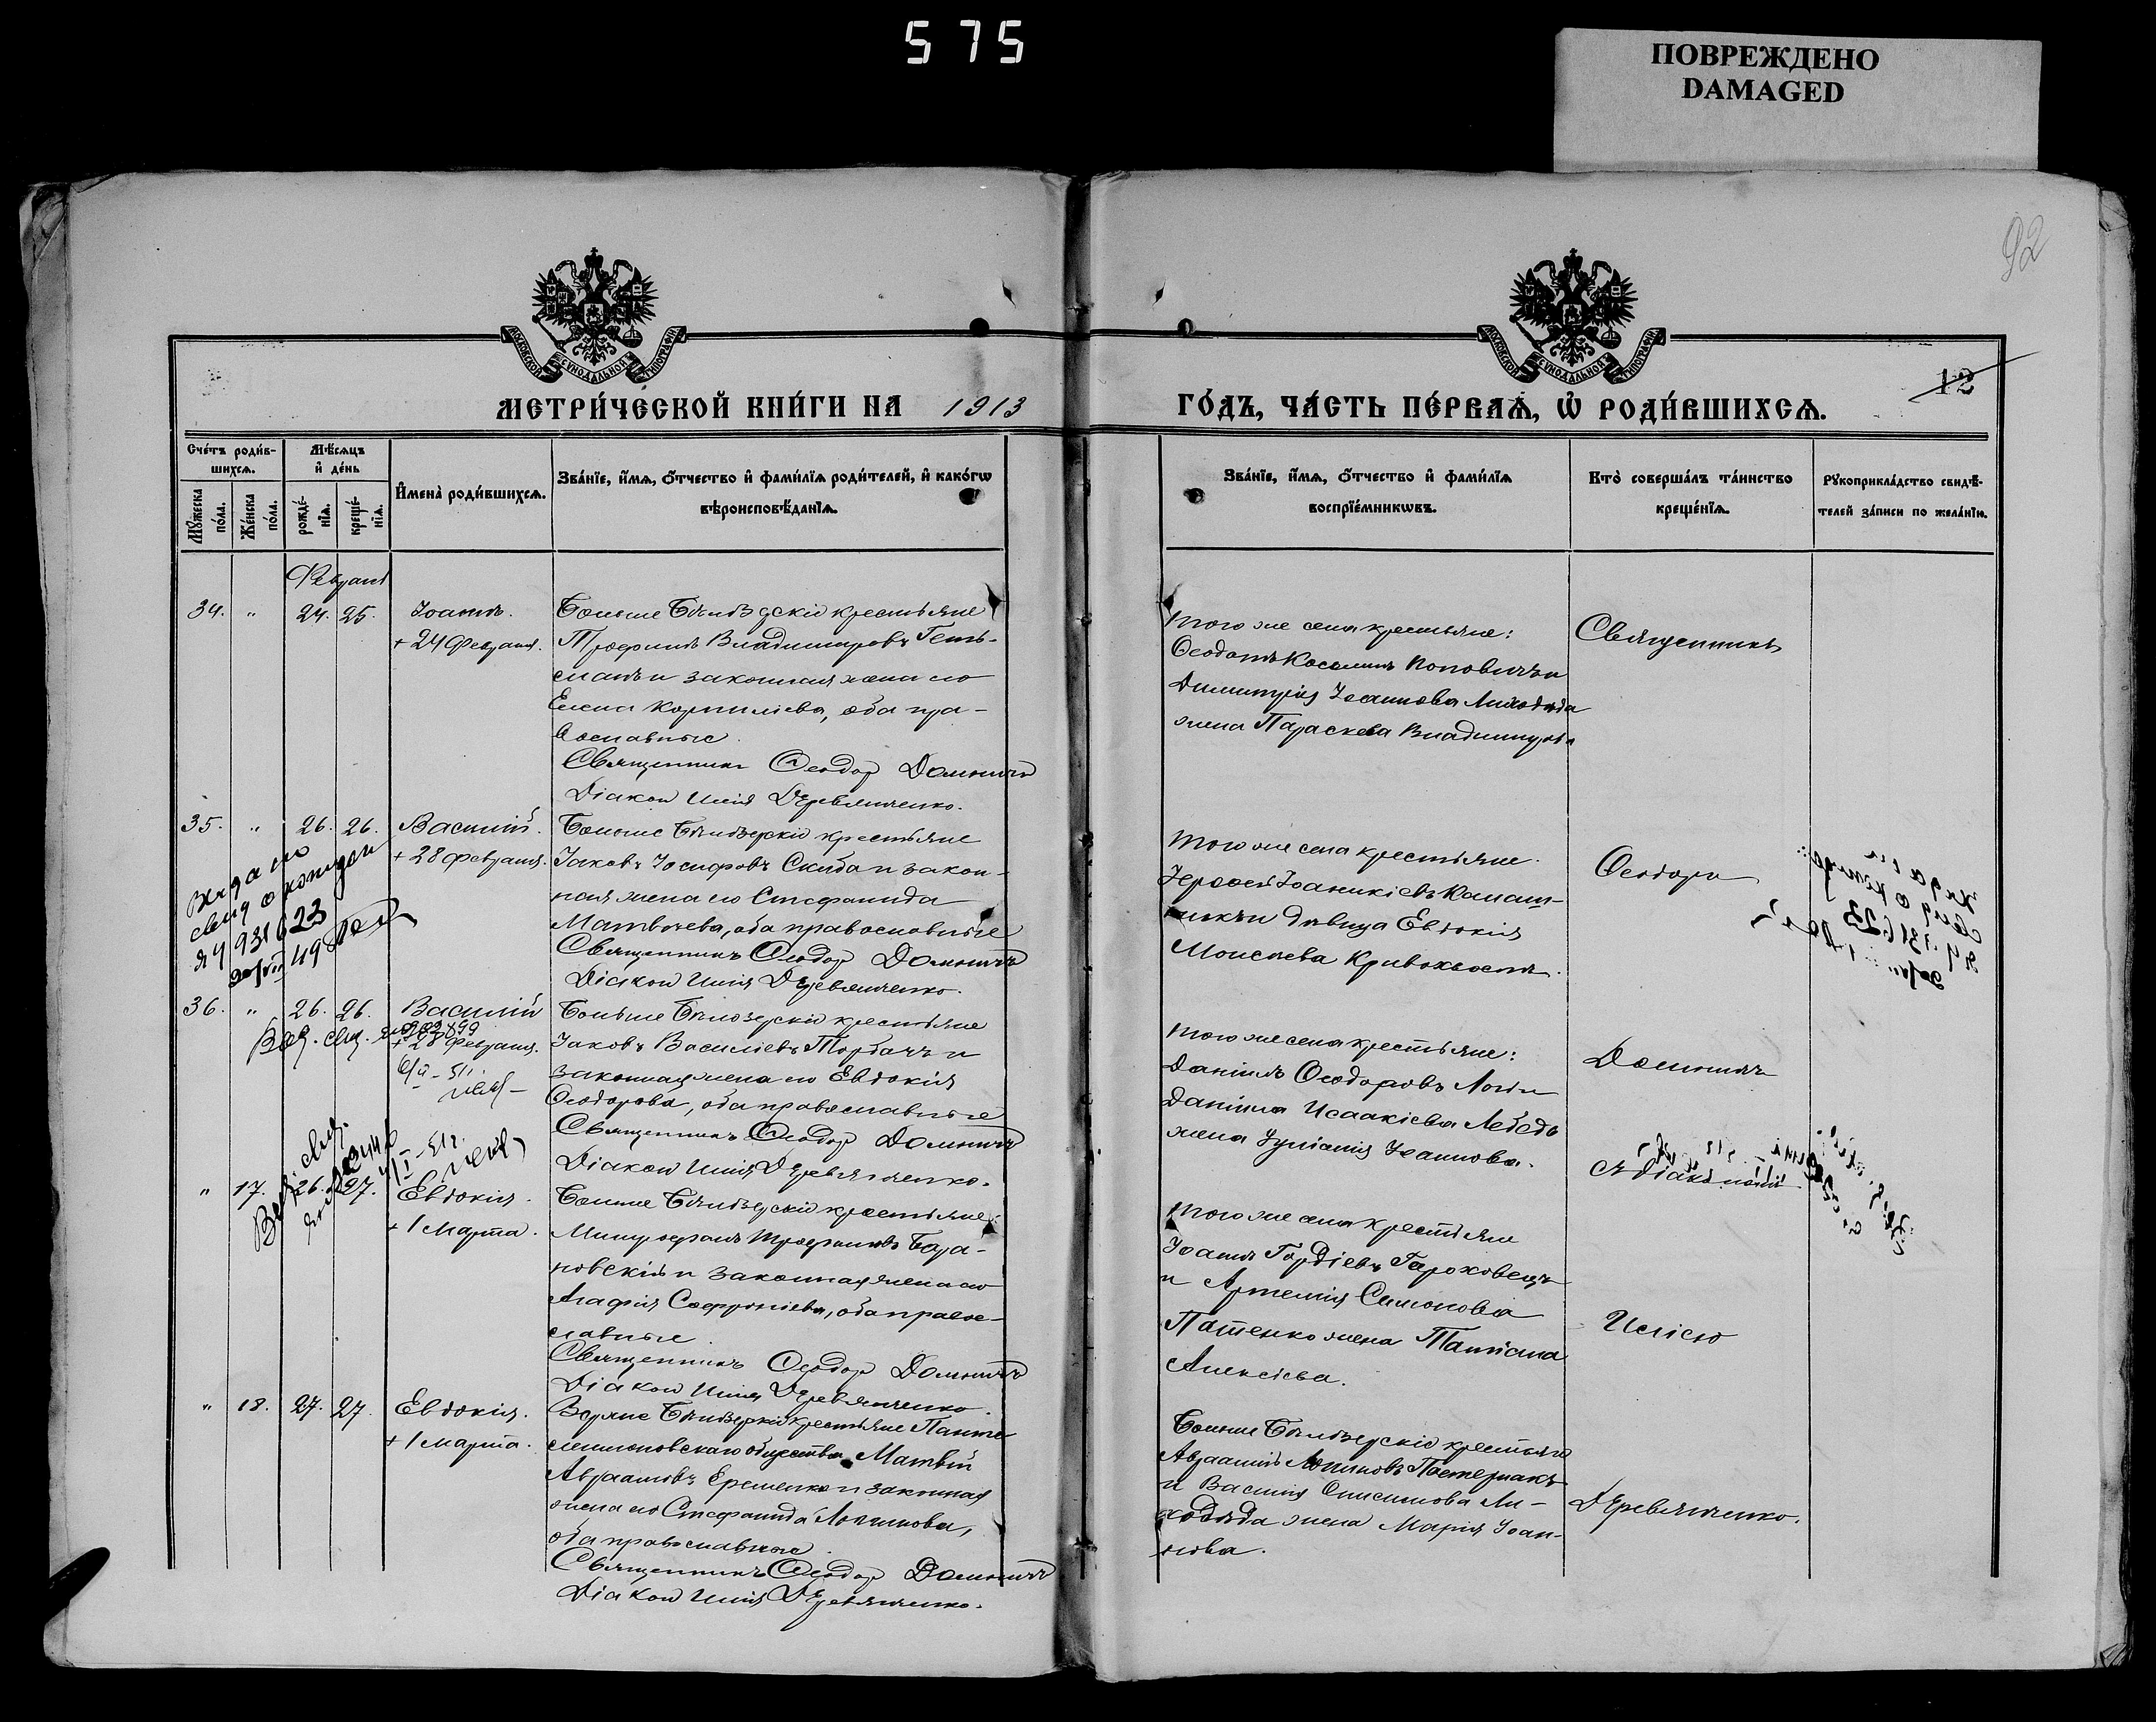 575
ПОВРЕЖДЕНО
DAMAGED
92
МОСКОВСКОЙ СѴНОДАЛЬНОЙ ТИПОГРАФІИ
МОСКОВСКОЙ СѴНОДАЛЬНОЙ ТИПОГРАФІИ
12
МЕТРИ́ЧЕСКОЙ КНИ́ГИ НА 1913
ГО́ДЪ, ЧА́СТЬ ПЕ́РВАѦ, Ѡ҆ РОДИ́ВШИХСѦ.
Сче́тъ роди́в-
шихсѧ.
Мѣ́сѧцъ
и҆ де́нь
Мꙋ́жеска
по́ла.
Же́нска
по́ла.
рожде́-
нїѧ.
креще́-
нїѧ.
И҆мена̀ роди́вшихсѧ.
Зва́нїе, и҆́мѧ, ѻ҆́тчество и҆ фами́лїѧ роди́телей, и҆ како́гѡ
вѣроисповѣ́данїѧ.
Зва́нїе, и҆́мѧ, ѻ҆́тчество и҆ фами́лїѧ
воспрїе́мникѡвъ.
Кто̀ соверша́лъ та́инство
креще́нїѧ.
Рꙋкоприкла́дство свидѣ́-
телей за́писи по жела́нїю.
Февраля
34. " 24. 25. Іоаннъ.
+ 24 Февраля.
Больше Бѣлозерскіе крестьяне
Трофимъ Владимировъ Геть-
манъ и законная жена его
Елена Корниліева, оба пра-
вославные.
Священникъ Ѳеодор Домничъ
Діакон Илія Деревянченко.
Того же села крестьяне:
Ѳеодотъ Косьминъ Поповичъ и
Димитрія Іоаннова Лиходѣда
жена Параскева Владимирова
Священникъ
35. " 26. 26. Василій.
+ 28 Февраля.
Больше Бѣлозерскіе крестьяне
Іаковъ Іосифовъ Скиба и закон-
ная жена его Стефанида
Матвѣева, оба православные
Священникъ Ѳеодор Домничъ
Діакон Илія Деревянченко.
Выдано
свид о
931623
49
Того же села крестьяне.
Іероѳей Іоанникіевъ Калаш-
никъ и дѣвица Евдокія
Моисеева Кривохвостъ.
Ѳеодоръ
36. " 26. 26. Василій
+ 28 Февраля.
Выд. свид.
6/II - 51г.
Больше Бѣлозерскіе крестьяне
Іаковъ Василіевъ Торбачъ и
законная жена его Евдокія
Ѳеодорова, оба православные
Священникъ Ѳеодор Домничъ
Діакон Илія Деревянченко.
Того же села крестьяне:
Даніилъ Ѳеодоровъ
Даніила Исаакіева Лебедь
жена Іуліанія Іоаннова.
Домничъ
съ діакономъ
" 17. 26. 27. Евдокія.
+ 1 Марта.
Выд. свид.
51г.
Больше Бѣлозерскіе крестьяне:
Митрофанъ Трофимовъ Бара-
новскій и законная жена его
Агафія Софроніева, оба право-
славные.
Священникъ Ѳеодор Домничъ
Діакон Илія Деревянченко.
Того же села крестьяне
Іоаннъ Гордіевъ Гороховецъ
и Артемія Симонова
Патенко жена Татіана
Алексіева.
Иліею
" 18. 27. 27. Евдокія.
+ 1 марта.
Больше Бѣлозерскіе крестьяне
леимоновскаго общества Матвѣй
Авраамовъ Еременко и законная
жена его Стефанида Логинова,
оба православные.
Священникъ Ѳеодор Домничъ
Діакон Илія Деревянченко.
Больше Бѣлозерскіе крестьяне
Авраамій Логиновъ Пастернакъ
и Василія Онисимова Ли-
ходѣда жена Марія Іоан-
нова.
Деревянченко.